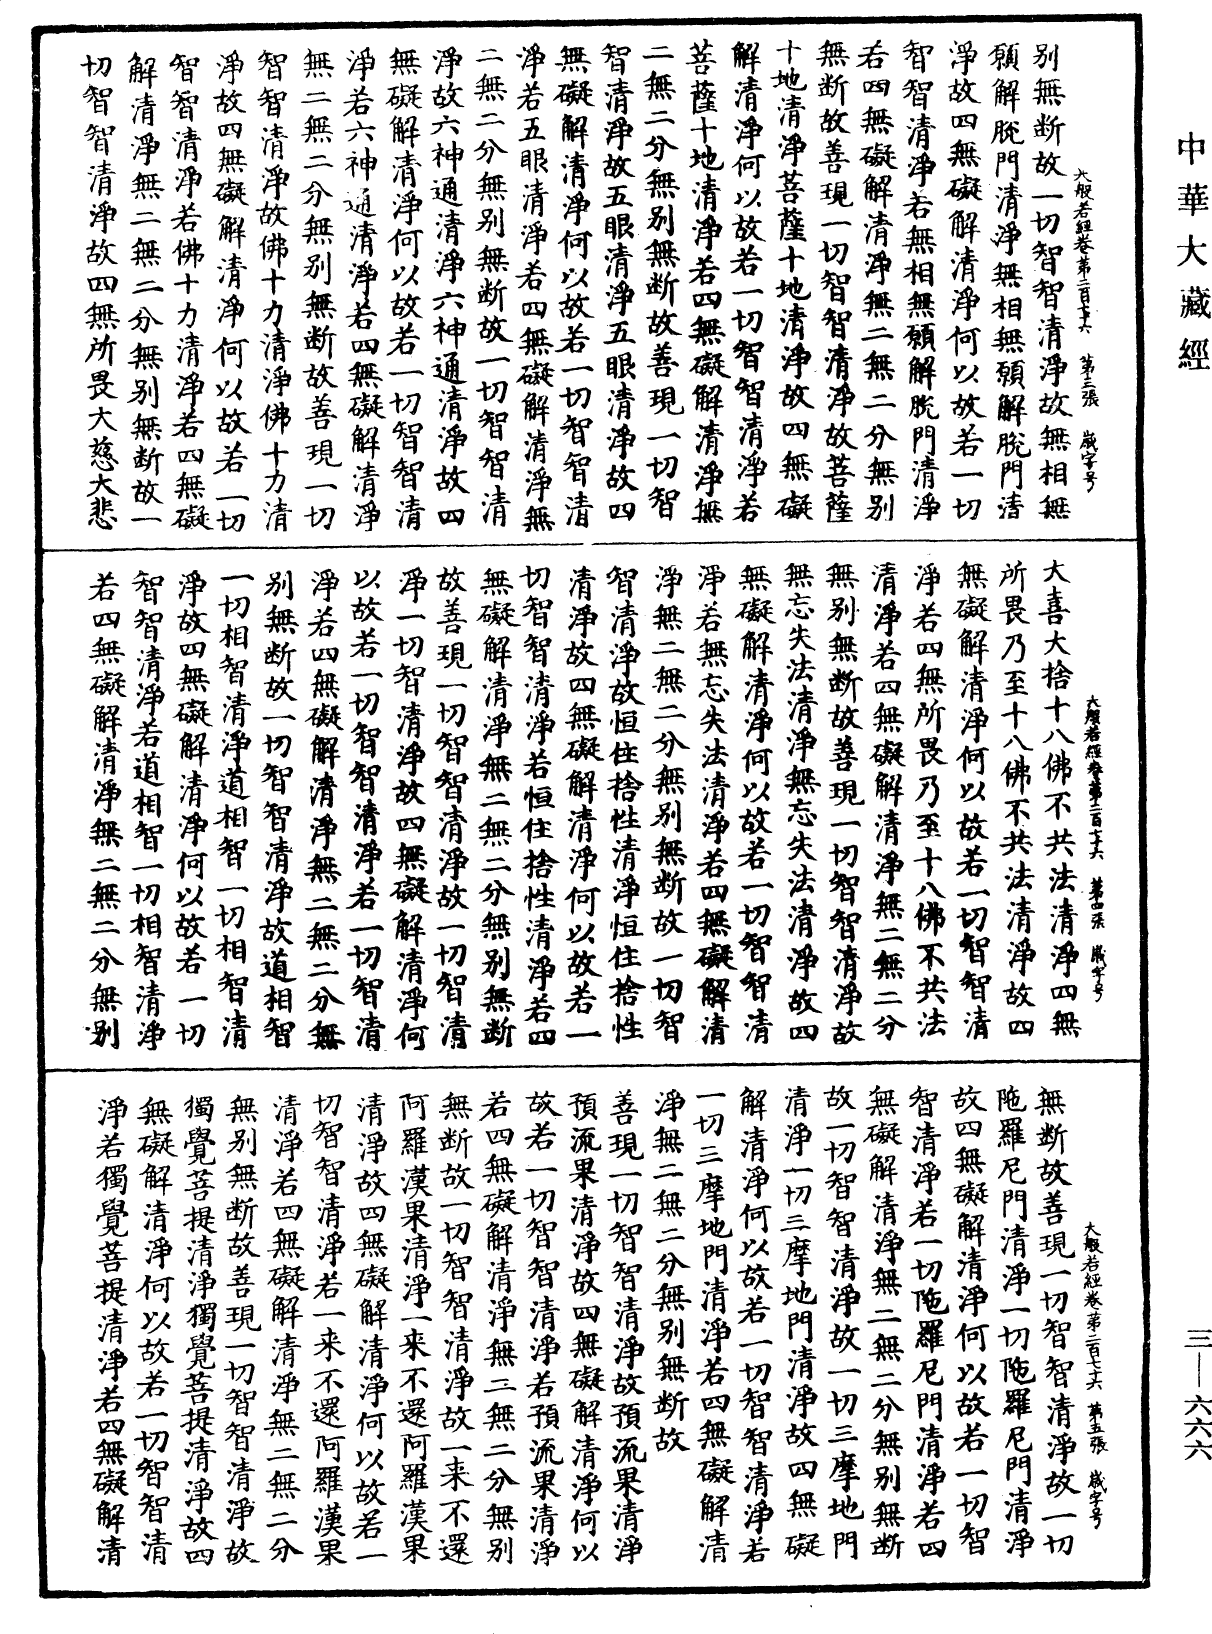 中華大藏經
大般若經卷第二百七十六 第三張 嵗字号
別無断故一切智智清淨故無相無
願解脫門清淨無相無願解脫門清
淨故四無礙解清淨何以故若一切
智智清淨若無相無願解脫門清淨
若四無礙解清淨無二無二分無別
無断故善現一切智智清淨故菩薩
十地清淨菩薩十地清淨故四無礙
解清淨何以故若一切智智清淨若
菩薩十地清淨若四無礙解清淨無
二無二分無別無断故善現一切智
智清淨故五眼清淨五眼清淨故四
無礙解清淨何以故若一切智智清
淨若五眼清淨若四無礙解清淨無
二無二分無別無断故一切智智清
淨故六神通清淨六神通清淨故四
無礙解清淨何以故若一切智智清
淨若六神通清淨若四無礙解清淨
無二無二分無別無断故善現一切
智智清淨故佛十力清淨佛十力清
淨故四無礙解清淨何以故若一切
智智清淨若佛十力清淨若四無礙
解清淨無二無二分無別無断故一
切智智清淨故四無所畏大慈大悲
大般若經卷第二百七十六 第四張 嵗字号
大喜大捨十八佛不共法清淨四無
所畏乃至十八佛不共法清淨故四
無礙解清淨何以故若一切智智清
淨若四無所畏乃至十八佛不共法
清淨若四無礙解清淨無二無二分
無別無断故善現一切智智清淨故
無忘失法清淨無忘失法清淨故四
無礙解清淨何以故若一切智智清
淨若無忘失法清淨若四無礙解清
淨無二無二分無別無断故一切智
智清淨故恒住捨性清淨恒住捨性
清淨故四無礙解清淨何以故若一
切智智清淨若恒住捨性清淨若四
無礙解清淨無二無二分無別無断
故善現一切智智清淨故一切智清
淨一切智清淨故四無礙解清淨何
以故若一切智智清淨若一切智清
淨若四無礙解清淨無二無二分無
別無断故一切智智清淨故道相智
一切相智清淨道相智一切相智清
淨故四無礙解清淨何以故若一切
智智清淨若道相智一切相智清淨
若四無礙解清淨無二無二分無別
大般若經卷第二百七十六 第五張 嵗字号
無断故善現一切智智清淨故一切
陁羅尼門清淨一切陁羅尼門清淨
故四無礙解清淨何以故若一切智
智清淨若一切陁羅尼門清淨若四
無礙解清淨無二無二分無別無断
故一切智智清淨故一切三摩地門
清淨一切三摩地門清淨故四無礙
解清淨何以故若一切智智清淨若
一切三摩地門清淨若四無礙解清
淨無二無二分無別無断故
善現一切智智清淨故預流果清淨
預流果清淨故四無礙解清淨何以
故若一切智智清淨若預流果清淨
若四無礙解清淨無二無二分無別
無断故一切智智清淨故一来不還
阿羅漢果清淨一来不還阿羅漢果
清淨故四無礙解清淨何以故若一
切智智清淨若一来不還阿羅漢果
清淨若四無礙解清淨無二無二分
無別無断故善現一切智智清淨故
獨覺菩提清淨獨覺菩提清淨故四
無礙解清淨何以故若一切智智清
淨若獨覺菩提清淨若四無礙解清
三—六六六